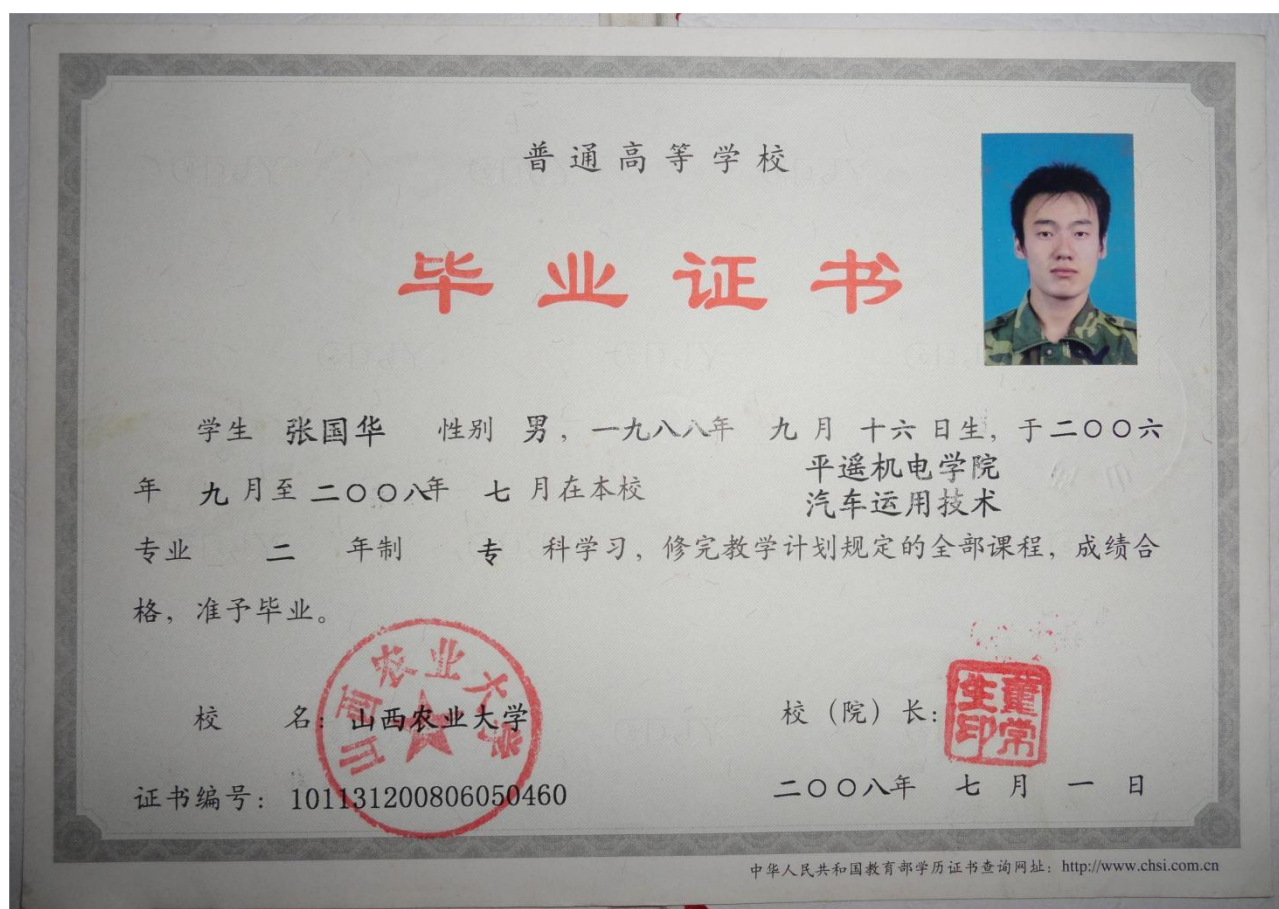 普通高等学校
毕业证书
学生 张国华 性别 男，一九八八年 九 月 十六 日生，于二〇〇六
年 九 月至 二〇〇八年 七 月在本校 平遥机电学院
汽车运用技术
专业 二 年制 专 科学习，修完教学计划规定的全部课程，成绩合
格，准予毕业。
校 名：山西农业大学
山西农业大学
校（院）长：
董常生印
证书编号：101131200806050460
二〇〇八年 七 月 一 日
中华人民共和国教育部学历证书查询网址：http://www.chsi.com.cn